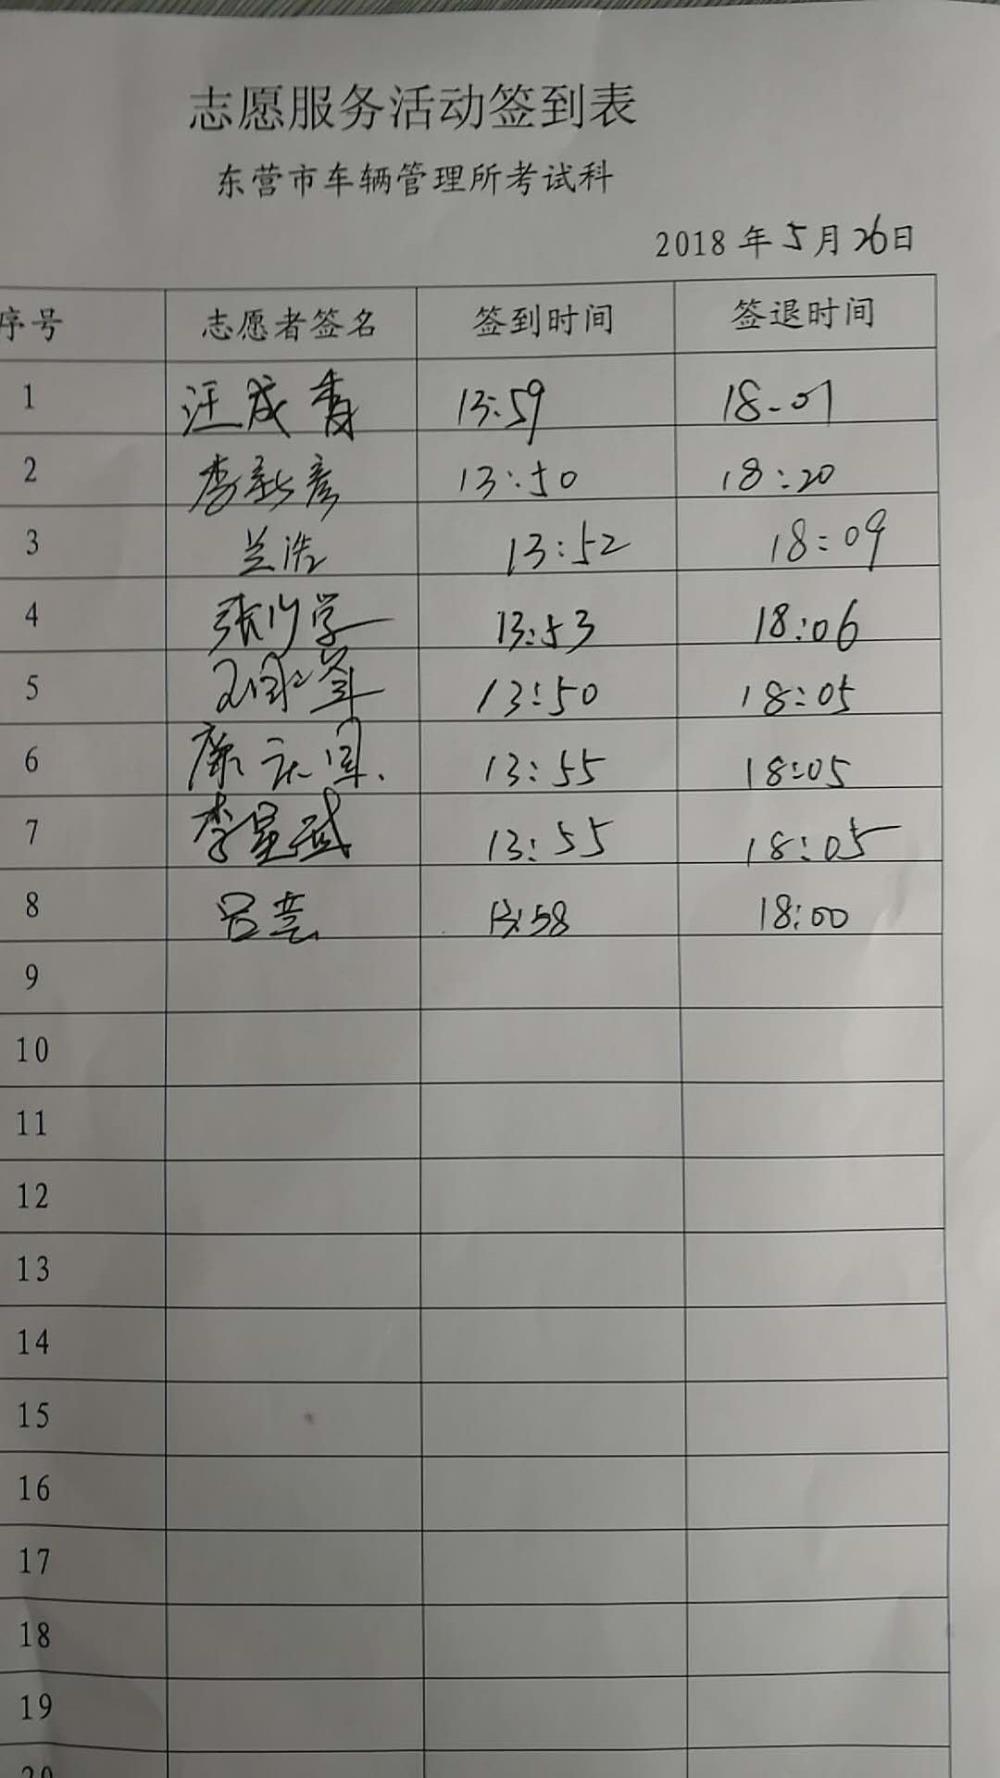 志愿服务活动签到表
东营市车辆管理所考试科
2018年5月26日
序号 志愿者签名 签到时间 签退时间
1 汪成香 13:59 18-01
2 李新彦 13:50 18:20
3 兰浩 13:52 18:09
4 张学 13:53 18:06
5 13:50 18:05
6 康 13:55 18:05
7 李星 13:55 18:05
8 吕芸 13:58 18:00
9
10
11
12
13
14
15
16
17
18
19
20